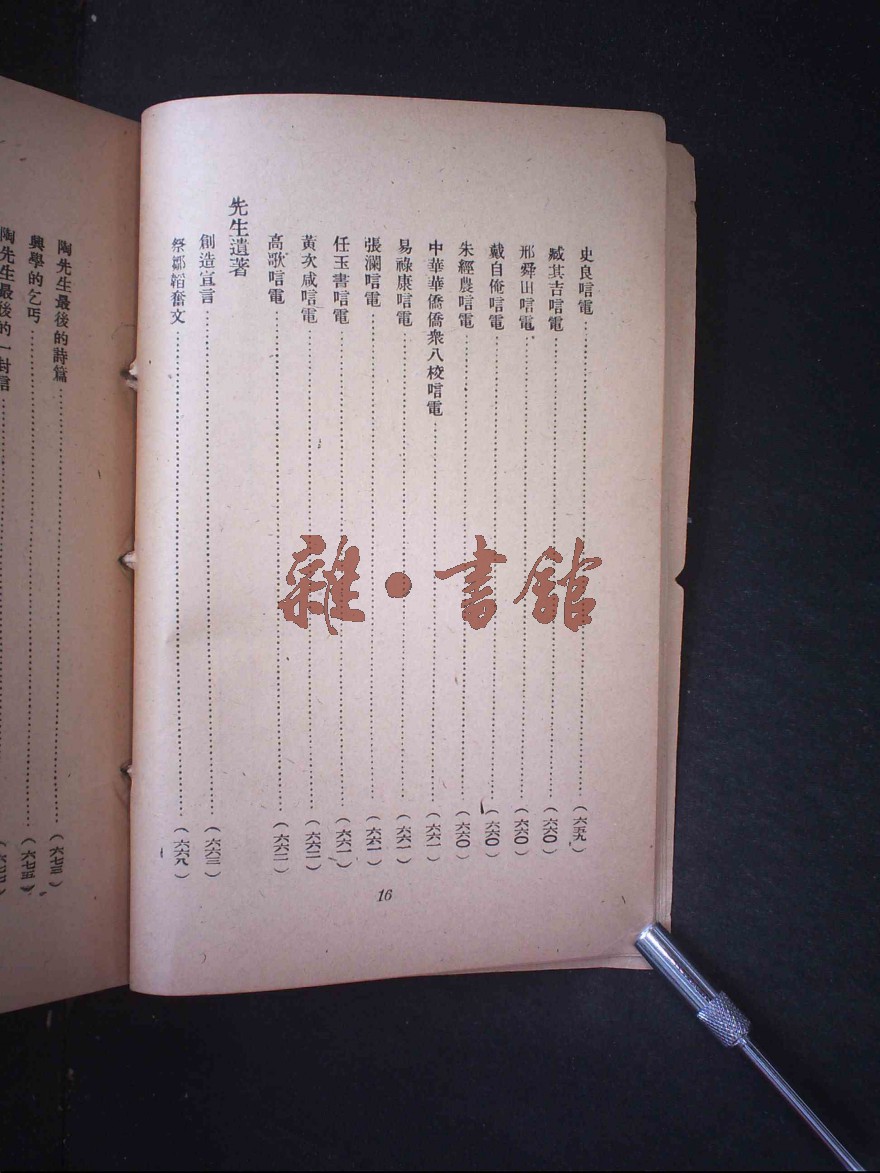 史良唁電（六五九）
臧其吉唁電（六六〇）
邢舜田唁電（六六〇）
戴自俺唁電（六六〇）
朱經農唁電（六六〇）
中華華僑僑衆八校唁電（六六一）
易祿康唁電（六六一）
張瀾唁電（六六一）
任玉書唁電（六六一）
黃次咸唁電（六六二）
高歌唁電（六六二）
先生遺著
創造宣言（六六三）
祭鄒韜奮文（六六八）
16
陶先生最後的詩篇（六七三）
興學的乞丐（六七五）
陶先生最後的一封信（六七七）
雜·書館